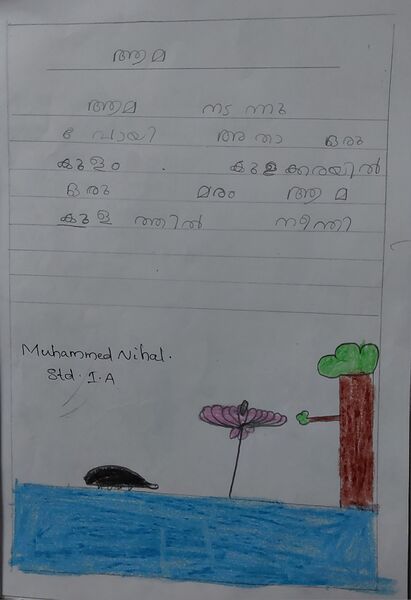 ആമ
ആമ നടന്നു
പോയി അതാ ഒരു
കുളം . കുളക്കരയിൽ
ഒരു മരം ആമ
കുള ത്തിൽ നീന്തി
Muhammed Nihal.
Std. I. A